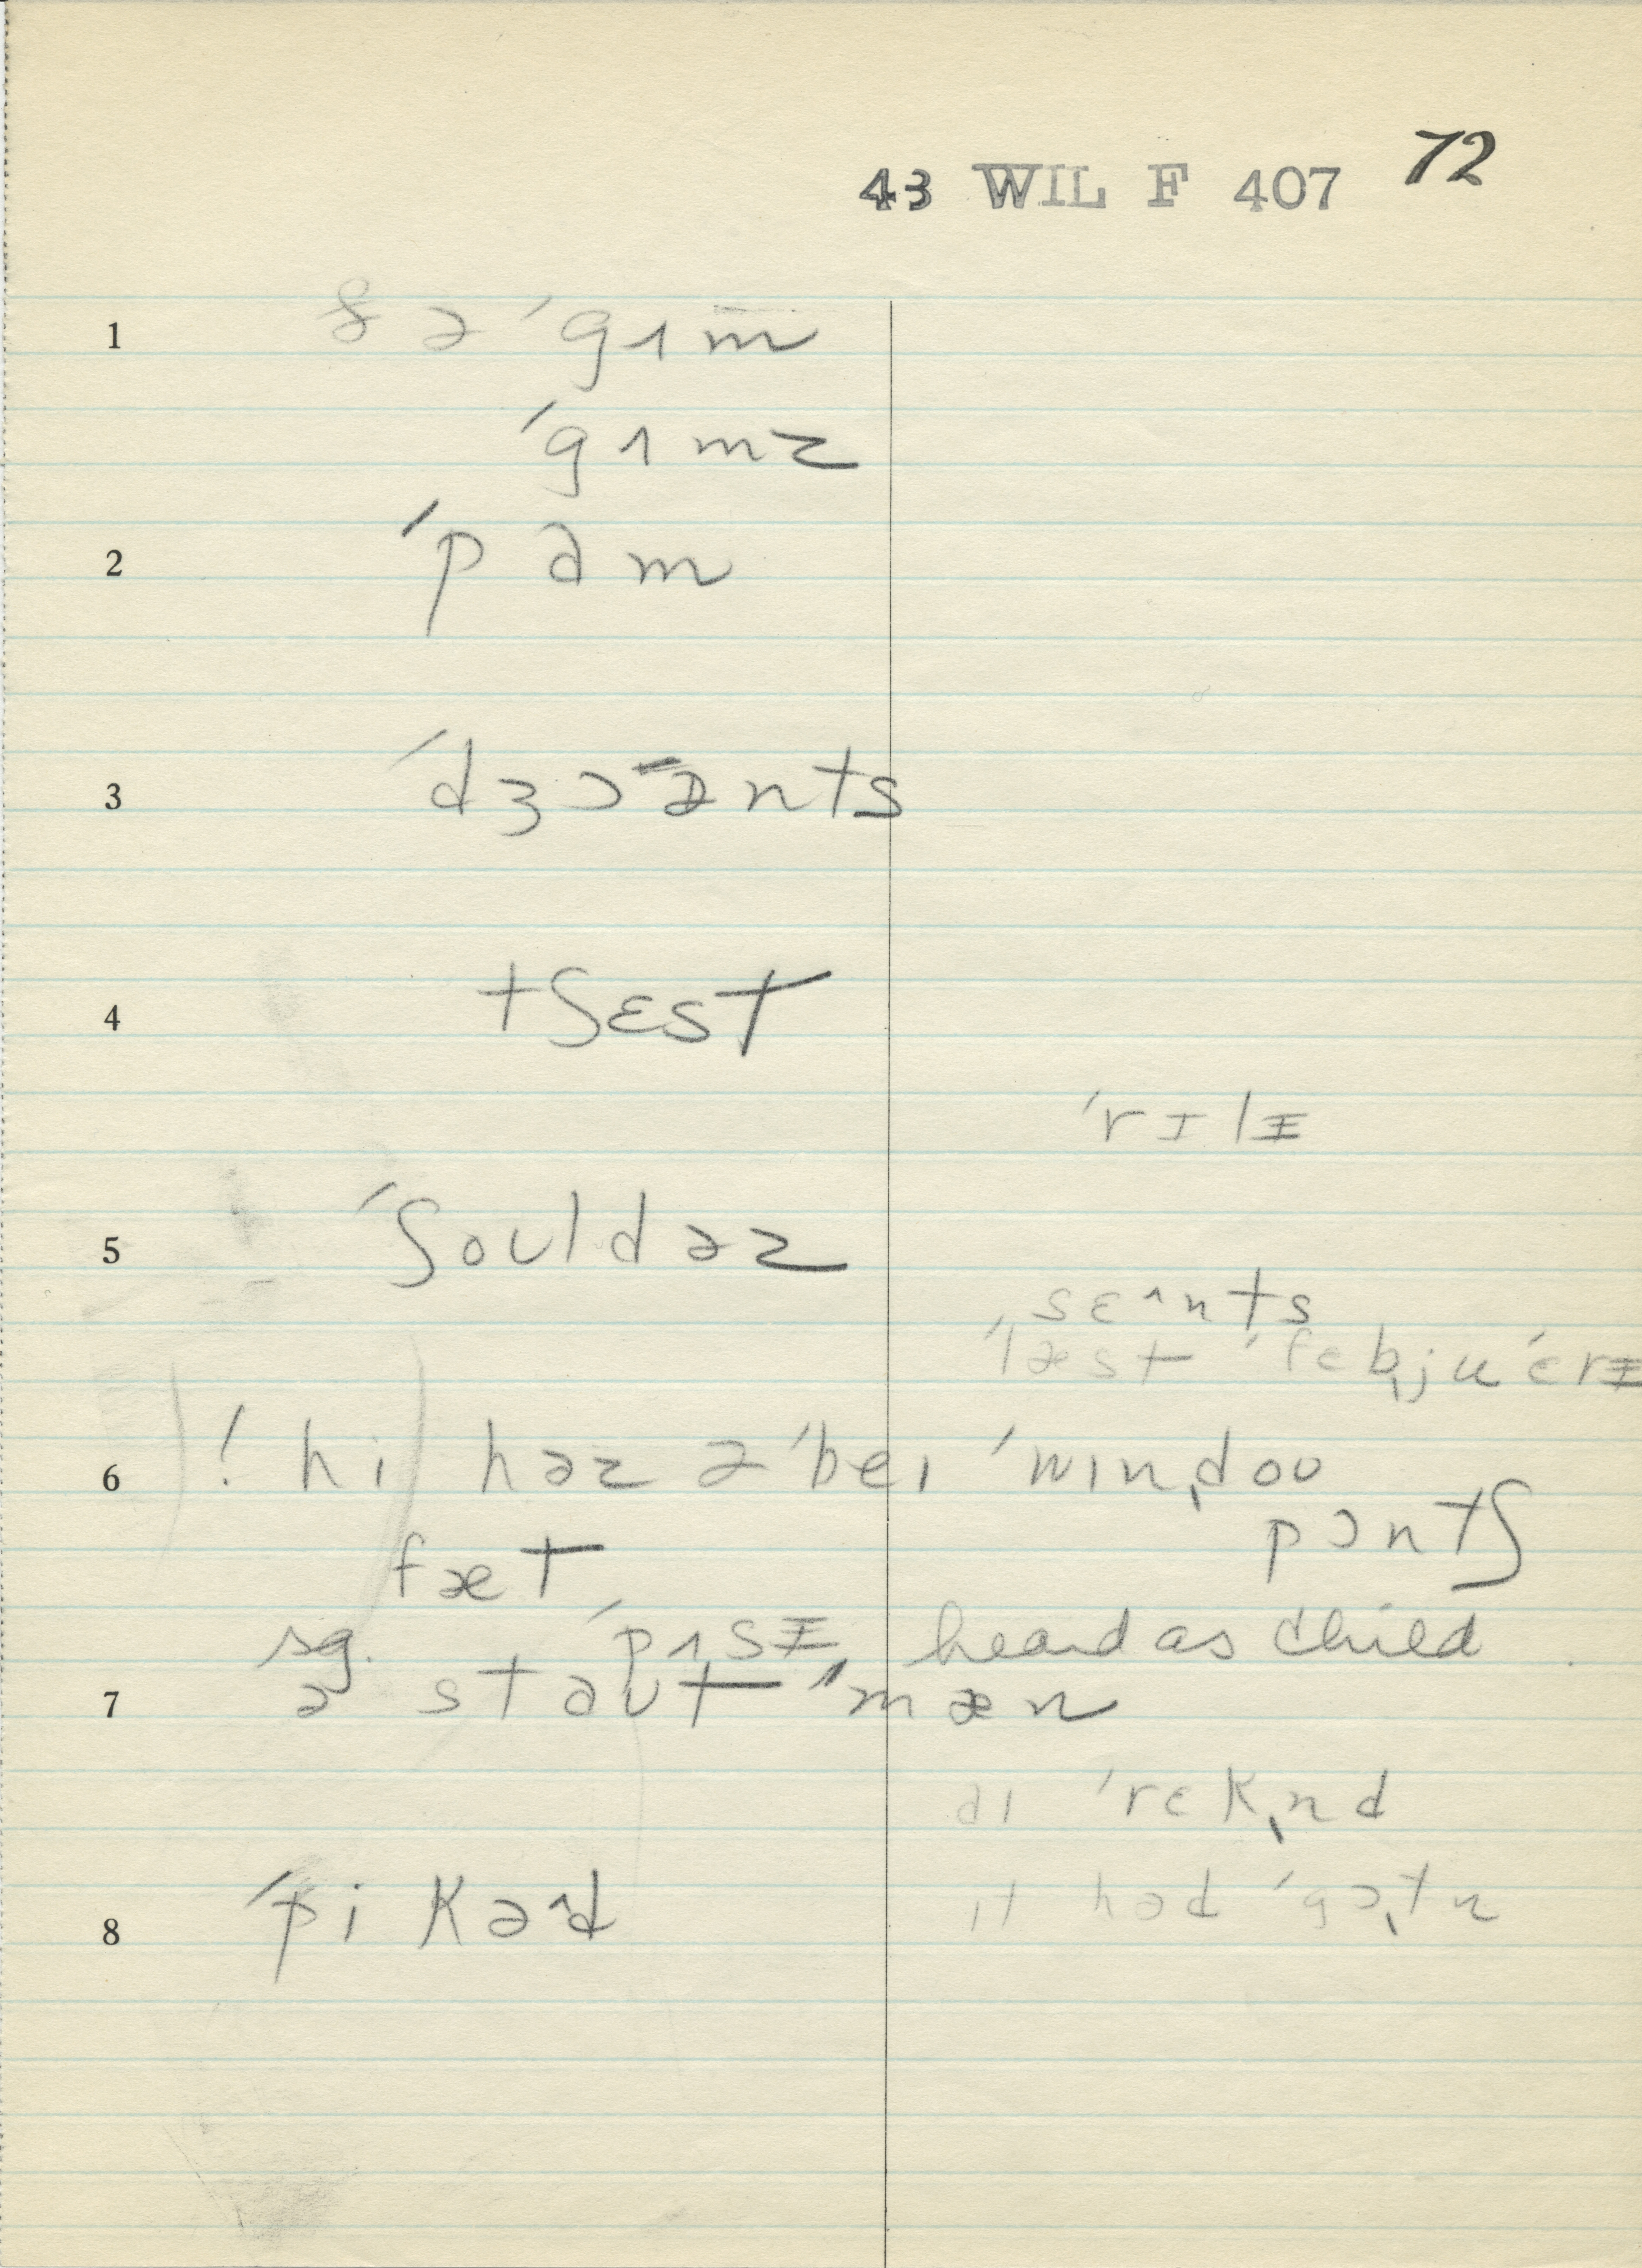 43 WIL F 407 72
1 ðə ˈgʌm
ˈgʌmz
2 ˈpɑm
3 ˈdʒɔɪənts
4 tʃɛst
ˈrɪlɨ
5 ˈʃouldəz
sɛ^nts
ˈlæst ˈfɛbjuˈɛrɨ
6 ! hi həz ə ˈbeɪ ˈwɪndoʊ
pɔntʃ
fæt
sg. ˈpʌsɨ, heard as child
7 ə staʊt ˈmæn
aɪ ˈrɛkṇd
8 ˈpikəd
ɪt həd ˈgɔtn